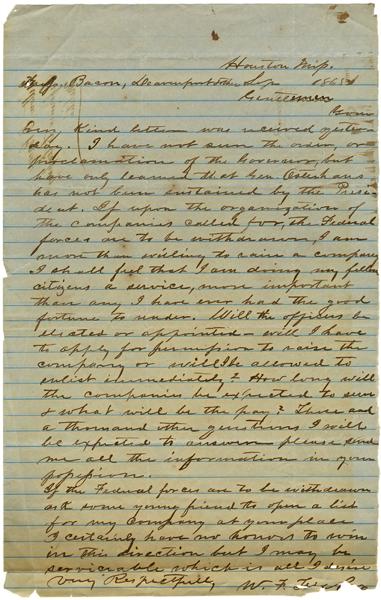 Houston Miss.
Bacon, Davenport & others Sep 1865
Gentlemen
Your
Very Kind letter was received yester
day. I have not seen the order, or
proclamation of the Governor, but
have only learned that Gen Osterhaus
has not been sustained by the Presi
dent. If upon the organization of
the companies called for, the Federal
forces are to be withdrawn, I am
more than willing to raise a company
I shall feel that I am doing my fellow
citizens a service, more important
than any I have ever had the good
fortune to render. Will the officers be
elected or appointed - will I have
to apply for permission to raise the
company or will I be allowed to
enlist immediately? How long will
the companies be expected to serve
& what will be the pay? These and
a thousand other questions I will
be expected to answer please send
me all the information in your
possession.
If the Federal forces are to be withdrawn
ask some young friend to open a list
for my company at your place
I certainly have no honors to win
in this direction but I may be
serviceable which is all I desire
Very Respectfully
W. F.